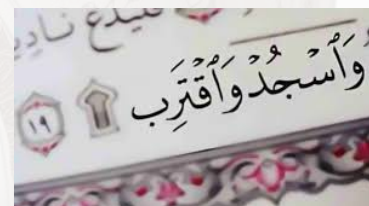 فليدع نادي
وَٱسۡجُدۡ وَٱقۡتَرِب ۩ ١٩